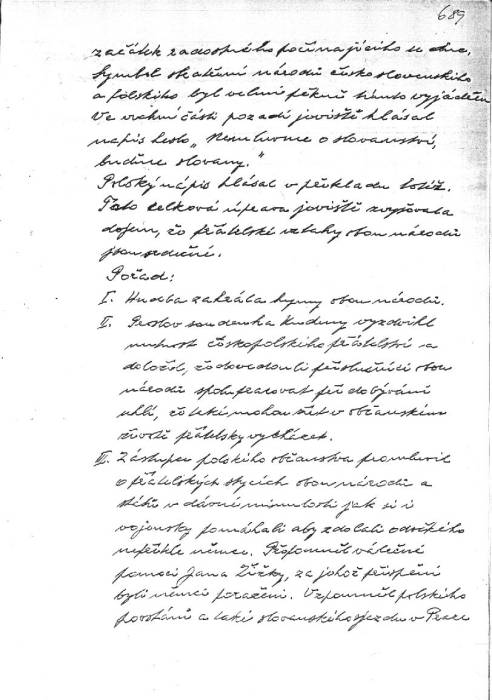 689
začátek radostného počínajícího se dne.
Symbol sbratření národů československého
a polského byl velmi pěkně tímto vyjádřen
Ve vrchní části pozadí jeviště hlásal
nápis heslo „Nemluvme o slovanství,
buďme slovany."
Polský nápis hlásal v překladu totéž.
Tato celková úprava jeviště zvyšovala
dojem, že přátelské vztahy obou národů
jsou srdečné.
Pořad:
I. Hudba zahrála hymny obou národů.
II. Proslov soudruha Kudeny vyzdvihl
nutnost českopolského přátelství a
doložil, že dovedou-li příslušníci obou
národů spolupracovat při dobývání
uhlí, že také mohou žít v občanském
životě přátelsky vycházet.
III. Zástupce polského občanstva promluvil
o přátelských stycích obou národů a
stěží v dávné minulosti jak se i
vojensky pomáhali aby zdolali odvěkého
nepřítele němce. Připomněl válečné
pomoci Jana Žižky, za jehož přispění
byli němci poraženi. Vzpomněl polského
povstání a také slovanského sjezdu v Praze